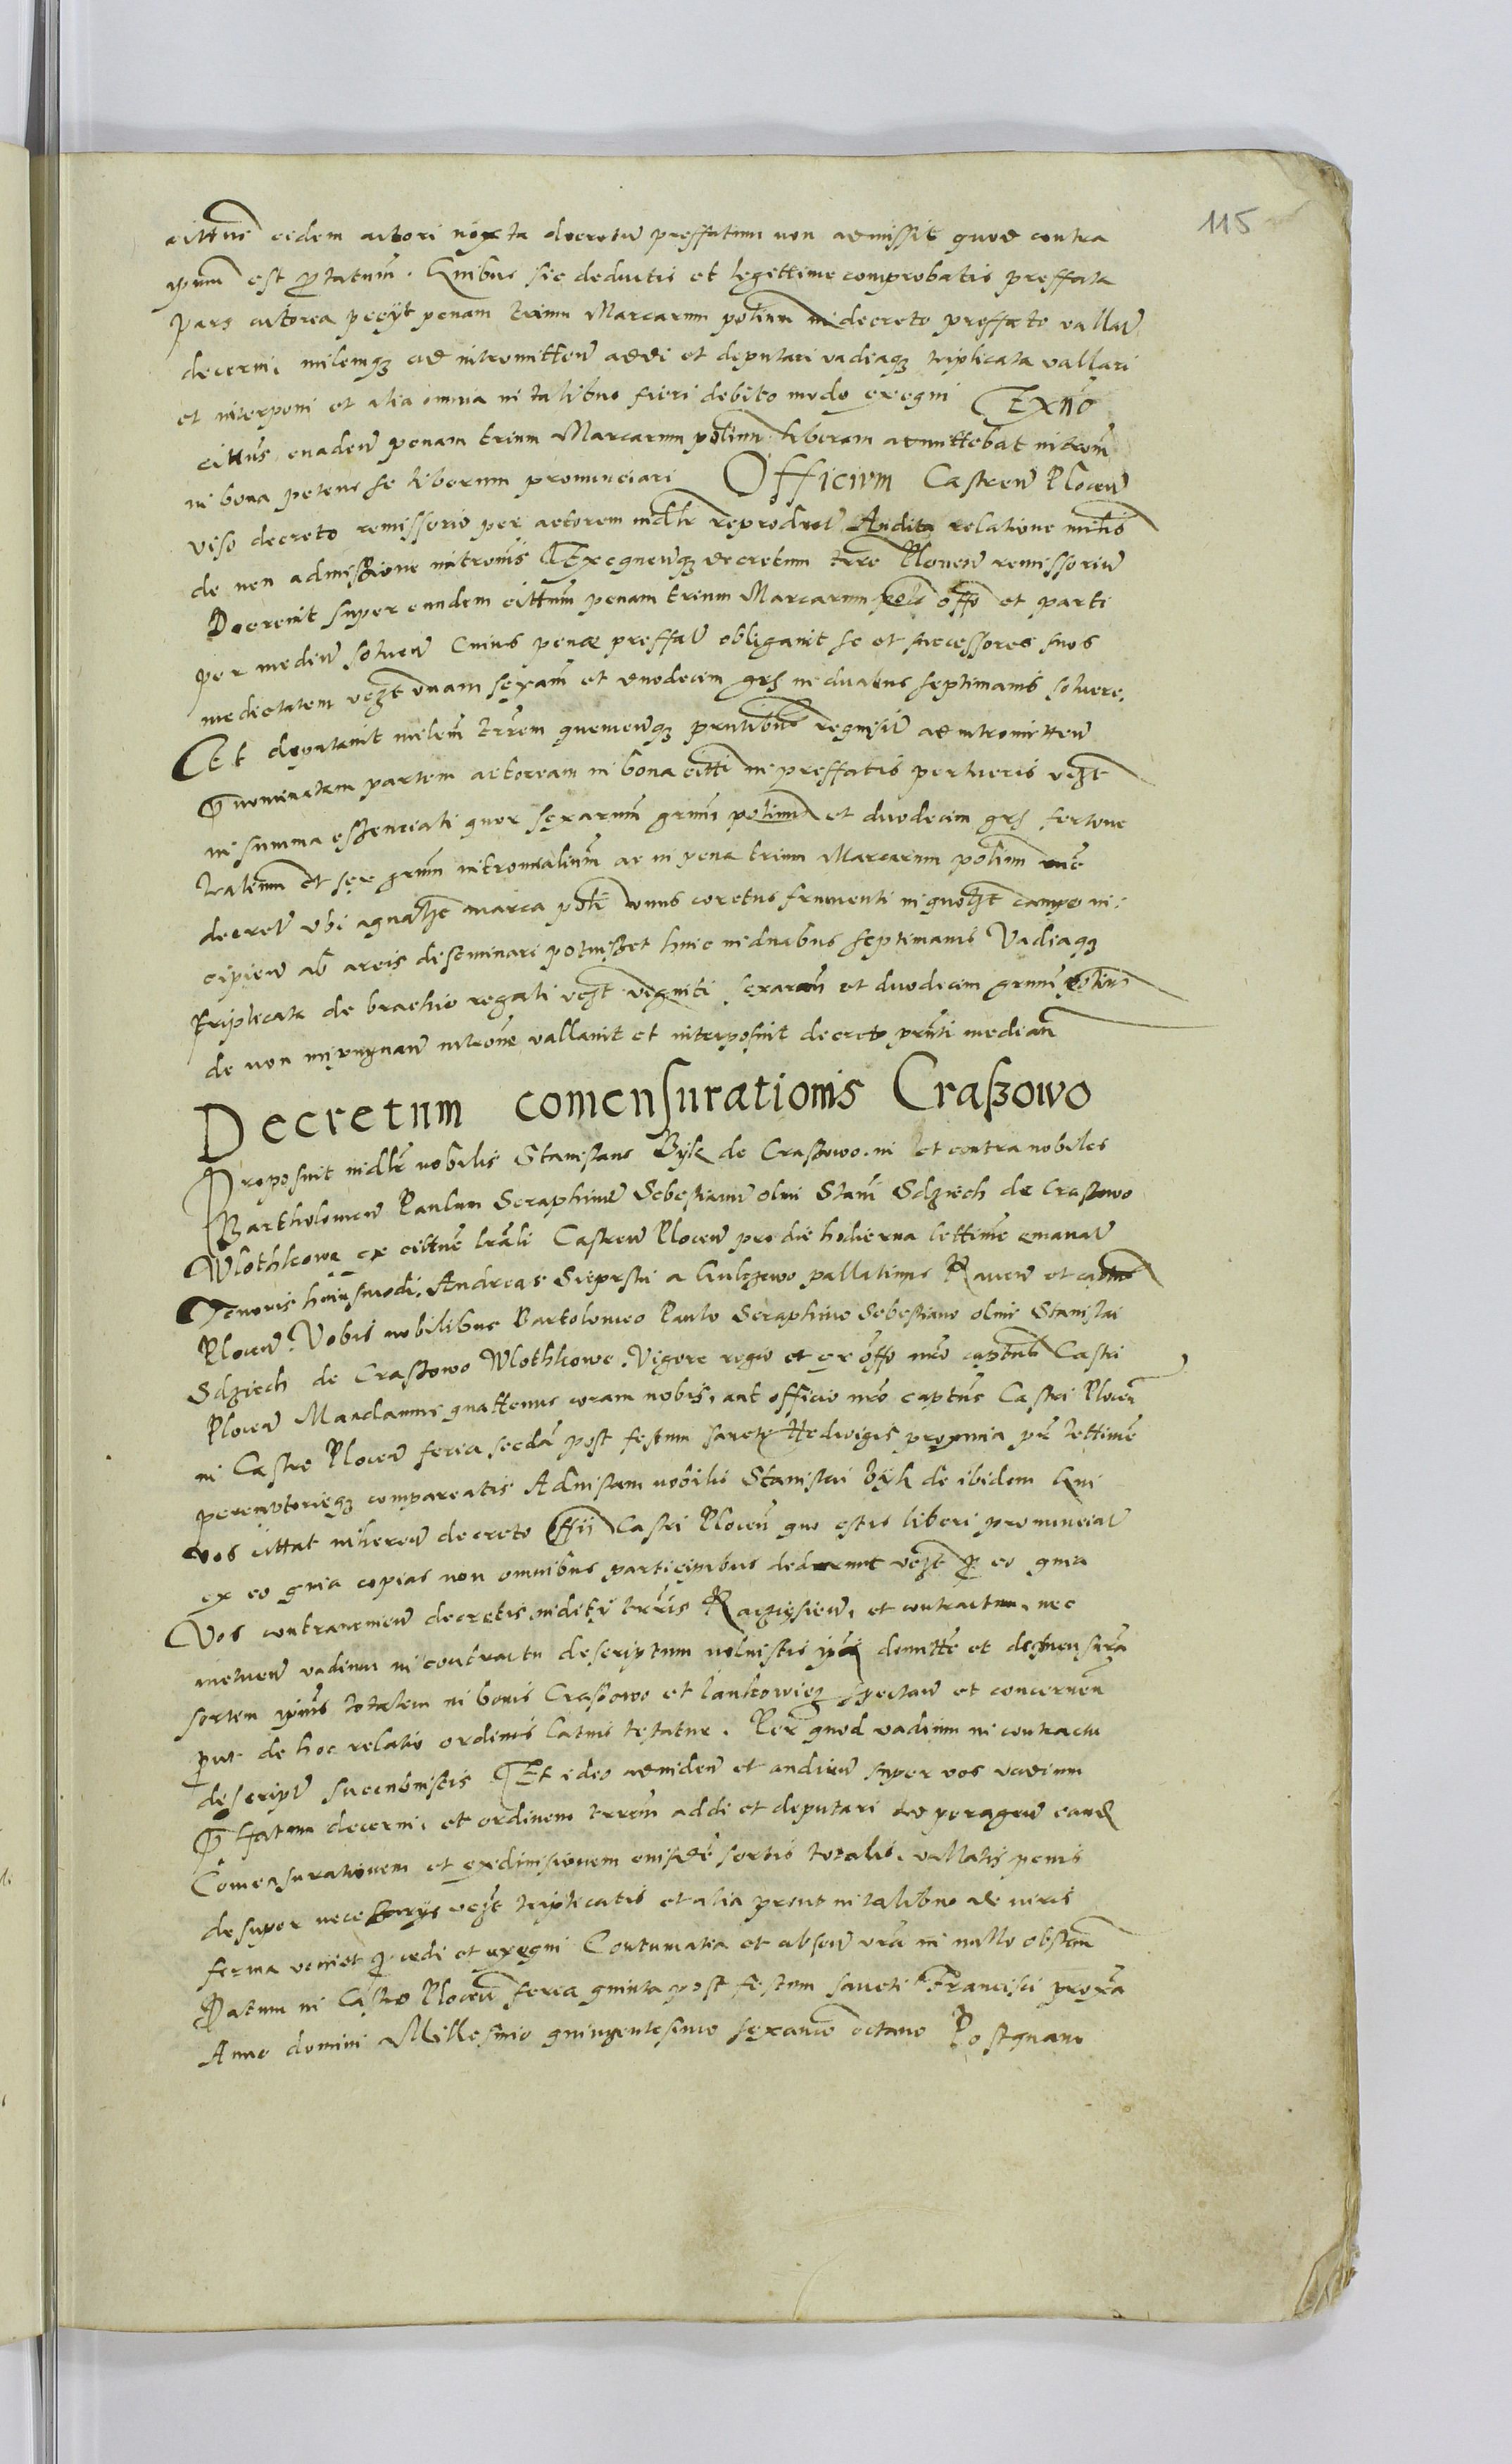 115
cittus eidem actori iuxta decretum preffatum non admissit quod contra
ipsum est protatum. Quibus sic deductis et legittime comprobatis preffata
pars actorea peciit penam trium Marcarum polium in decreto preffato vallatam
decerni, milemq3 ad intromittendum addi et deputari vadiaq3 triplicata vallari
et interponi et alia omnia in talibus fieri debito modo exequi Ex uno
cittus evadendo penam trium Marcarum polium liberam admittebat introm
in bona petens se liberum pronunciari Officium Castren Plocen
viso decreto remissorio per actorem indltr reproducto Audita relatione milis
de non admissione intromis Exequendoq3 decretum terre Plocen remissorium
Decrevit super eundem cittum penam trium Marcarum pols offo et parti
per medium solvendam Cuius pene preffatus obligavit se et successores suos
medietatem vczt unam sexam et duodecim grs in duabus septimanis solvere.
Et deputavit milem trrem quemcunq3 prntibus requisitum ad intromittendum
prenominatam partem actoream in bona citti in preffatis perlucris vczt
in summa essenciali quor sexarum grum polium et duodecim grs fertone
talium et sex grum intromalium ac in pena trium Marcarum polium
decreta ubi a qualzt marca poli unus coretus frumenti in quolzt campo in
cipiendo ab areis diseminari potuisset hinc in duabus septimanis Vadiaq3
triplicata de brachio regali vczt viginti sexarum et duodecim grum polium
de non impugnando introne vallavit et interposuit decreto prnti mediante
Decretum comensurationis Craszowo
Proposuit indltr nobilis Stanislaus Byk de Craszowo in et contra nobiles
Bartholomeum Paulum Seraphinum Sebestianum olim Stani Sdziech de Craszowo
Wlothkowe ex cittne lrali Castren Plocen pro die hodierna lettime emanata
Tenoris huiusmodi. Andreas Sieprski a Gulczewo pallatinus Raven et captus
Plocen. Vobis nobilibus Bartolomeo Paulo Seraphino Sebestiano olim Stanislai
Sdziech de Craszowo Wlothkowe. Vigore regio et ex offo nro captuli Castri
Plocen Mandamus quattenus coram nobis, aut officio nro captus Castri Plocen
in Castro Plocen feria secda post festum sancte Hedvigis proxima per lettime
peremptorieq3 compareatis Ad instam nobilis Stanislai Byk de ibidem Qui
vos cittat inherendo decreto offii Castri Plocen quo estis liberi pronunciati
ex eo quia copias non omnibus participibus dederunt vczt pro eo quia
Vos contraveniendo decretis iuditii trris Raczyazien, et contractum, nec
metuendo vadium in contractu descriptum noluistis ipi dimitte et dismensura
sortem ipius totalem in bonis Craszowo et Jankowicz spectan et concernen
prout de hoc relatio ordinis latius testatur. Per quod vadium in contractu
descriptum succubuistis Et ideo ad videndum et audiendum super vos vadium
preffatum decerni, et ordinem trrem addi et deputari ad peragendam eand
Comensurationem et exdivisionem eiusdem sortis totalis, vallatis penis
desuper necessariis vczt triplicatis et alia prout in talibus de iuris
forma veniet procedi et exequi Contumatia et absen vra in nullo obstan
Datum in Castro Plocen feria quinta post festum sancti Francisci proxa
Anno domini Millesimo quingentesimo sexanmo octavo Postquam